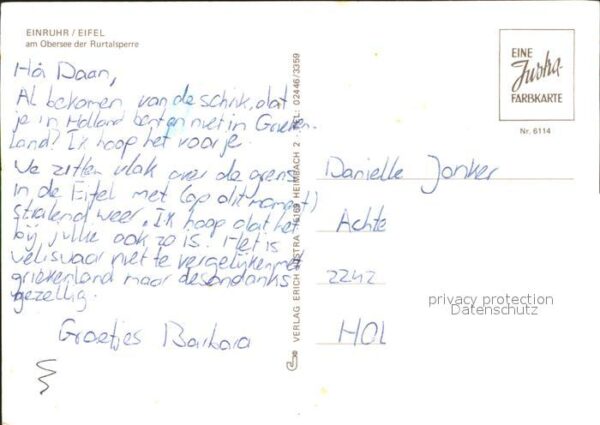 EINRUHR / EIFEL
am Obersee der Rurtalsperre
Hoi Daan,
Al bekomen van de schrik, dat
je in Holland bent en niet in Grieken-
land? Ik hoop het voor je.
We zitten vlak over de grens
in de Eifel met (op dit moment)
stralend weer. Ik hoop dat het
bij jullie ook zo is. Het is
weliswaar niet te vergelijken met
griekenland maar desondanks
gezellig.
Groetjes Barbara
VERLAG ERICH JUSTRA 5169 HEIMBACH 2 · TEL: 02446/3359
EINE
Justra
FARBKARTE
Nr. 6114
Danielle Jonker
Achte
2242
HOL
privacy protection
Datenschutz